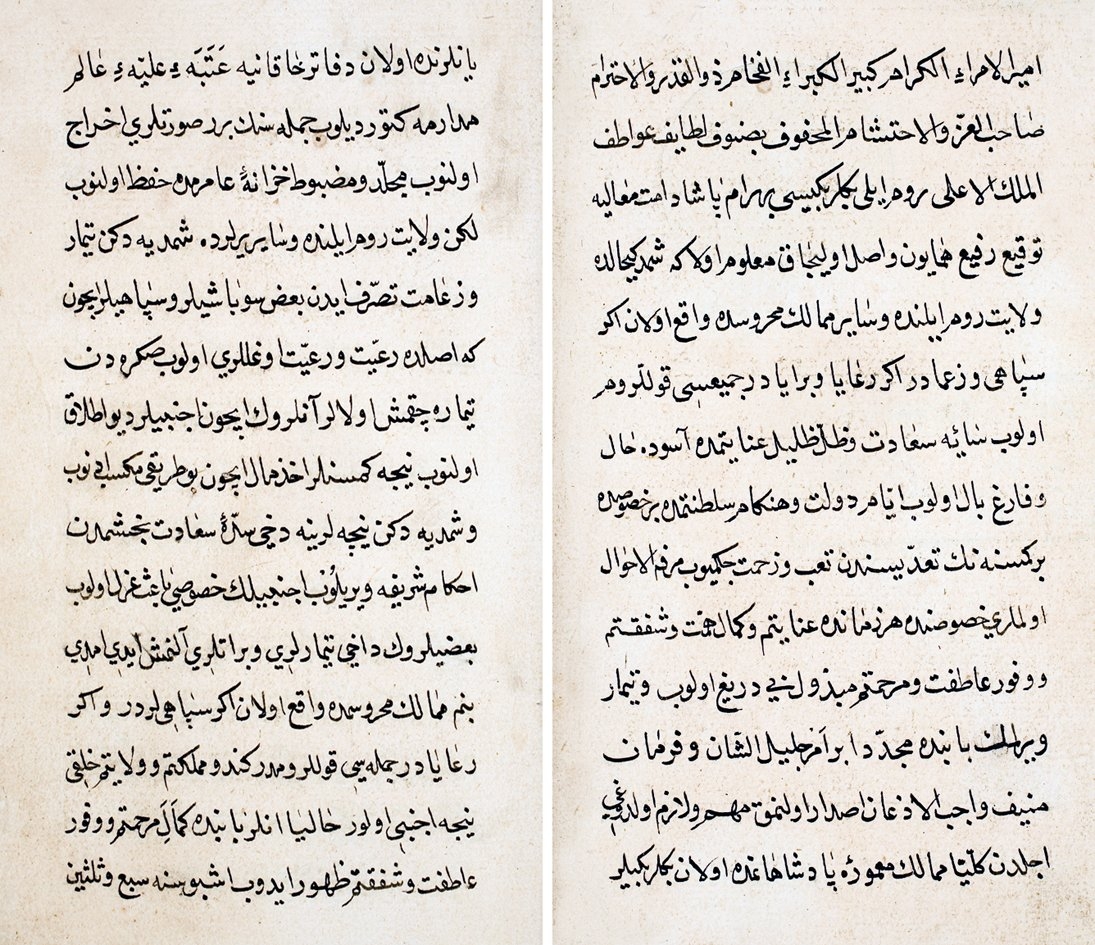 امير الامراء الكرام كبير الكبراء الفخام ذو القدر والاحترام
صاحب العز والاحتشام المحفوف بصنوف لطايف عواطف
الملك الاعلى روم ايلى بكلربكيسى بهرام پاشا دامت معاليه
توقيع رفيع همايون واصل اوليجاق معلوم اولا كه شمديكيحالده
ولايت روم ايلنده وساير ممالك محروسده واقع اولان اكر
سپاهى وزعمادر اكر رعايا وبرايادر جميعسى قوللرومدر
اولوب سايۀ سعادت وظل ظليل عنايتمده آسوده حال
وفارغ بال اولوب ايام دولت وهنكام سلطنتمده بر خصوصده
بر كمسنه نك تعديسندن تعب وزحمت چكميوب مرفه الاحوال
اولمالري خصوصنده هر زمانده عنايتم وكمال همت وشفقتم
ووفور عاطفت ومرحمتم مبذول بى دريغ اولوب وتيمار
وبراتلرى بابنده مجددا بر امر جليل الشان وفرمان
منيف واجب الاذعان اصدار اولنمق مهم ولازم اولدوغى
اجلدن كليّا ممالك معمورۀ پادشاهانمده اولان بكلربكيلر
يانلرنده اولان دفاتر خاقانيه عَتَبَهء عليّهء عالم
مدارمه كتورديلوب جمله سنك برر صورتلري اخراج
اولنوب مجلّد ومضبوط خزانۀ عامرمده حفظ اولنوب
لكن ولايت روم ايلنده وساير يرلرده شمديه دكن تيمار
وزعامت تصرّف ايدن بعض سوباشيلر وسپاهيلرايچون
كه اصلده رعيّت ورعيّت اوغللري اولوب صكره دن
تيماره چقمش اولالر آنلروك ايچون اجنبيلر ديو اطلاق
اولنوب نيجه كمسنلر اخذ مال ايچون بو طريقى مكسب ايدنوب
وشمديه دكن نيچه لرينه دخى سدۀ سعادت بخشمدن
احكام شريفه ويريلوب اجنبيلك خصوصى باعث عزل اولوب
بعضيلروك داخى تيمارلري وبراتلري آلنمش ايدي امدي
بنم ممالك محروسمده واقع اولان اكر سپاهى لردر واكر
رعايادر جمله سى قوللرومدر كندو مملكتم وولايتم خلقى
نيجه اجنبى اولور حاليا انلر بابنده كمال مرحمتم ووفور
عاطفت وشفقتم ظهور ايدوب اشبو سنه سبع وثلثين